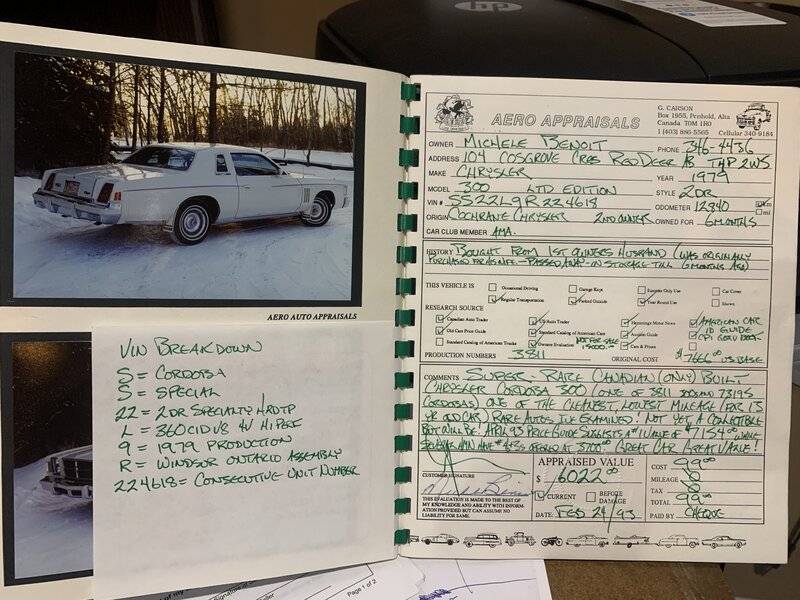 hp
AERO AUTO APPRAISALS
VIN BREAKDOWN
S = CORDOBA
S = SPECIAL
22 = 2DR SPECIALTY HRDTP
L = 360CID V8 4V HIPERF
9 = 1979 PRODUCTION
R = WINDSOR ONTARIO ASSEMBLY
224618 = CONSECUTIVE UNIT NUMBER
AERO APPRAISALS
G. CARSON
Box 1955, Penhold, Alta
Canada T0M 1R0
1 (403) 886-5565 Cellular 340-9184
OWNER MICHELE BENOIT PHONE 346-4436
ADDRESS 104 COSGROVE CRES RED DEER AB T4P 2W5
MAKE CHRYSLER YEAR 1979
MODEL 300 LTD EDITION STYLE 2DR
VIN # SS22L9R224618 ODOMETER 12840 km mi
ORIGIN COCHRANE CHRYSLER 2ND OWNER OWNED FOR 6 MONTHS
CAR CLUB MEMBER AMA.
HISTORY BOUGHT FROM 1ST OWNERS HUSBAND (WAS ORIGINALLY
PURCHASED FOR WIFE - PASSED AWAY - IN STORAGE TILL 6 MONTHS AGO)
THIS VEHICLE IS Occasional Driving Garage Kept Summer Only Use Car Cover
Regular Transportation Parked Outside Year Round Use Shown
RESEARCH SOURCE
Canadian Auto Trader US Auto Trader Hemmings Motor News AMERICAN CAR
Old Cars Price Guide Standard Catalog of American Cars Accurate Guide ID GUIDE
Standard Catalog of American Trucks Owners Evaluation NOT FOR SALE Cars & Prices CPI GOLD BOOK
PRODUCTION NUMBERS 3811 ORIGINAL COST $7666.00 US BASE
COMMENTS SUPER-RARE CANADIAN (ONLY) BUILT
CHRYSLER CORDOBA 300 (ONE OF 3811 300S AND 73195
CORDOBAS) ONE OF THE CLEANEST, LOWEST MILEAGE (FOR 13
YR OLD CAR) RARE AUTOS I'VE EXAMINED! NOT YET A COLLECTIBLE
BUT WILL BE! APRIL 93 PRICE GUIDE SUGGESTS A #1 VALUE OF $7154.00
GREAT CAR GREAT VALUE!
CUSTOMER SIGNATURE
THIS EVALUATION IS MADE TO THE BEST OF
MY KNOWLEDGE AND ABILITY WITH INFORM-
ATION PROVIDED BUT CAN ASSUME NO
LIABILITY FOR SAME.
APPRAISED VALUE
$ 6022.00
CURRENT BEFORE DAMAGE
DATE: FEB 24/93
COST 99.00
MILEAGE 0
TAX 0
TOTAL 99.00
PAID BY CHEQUE
Page 1 of 2